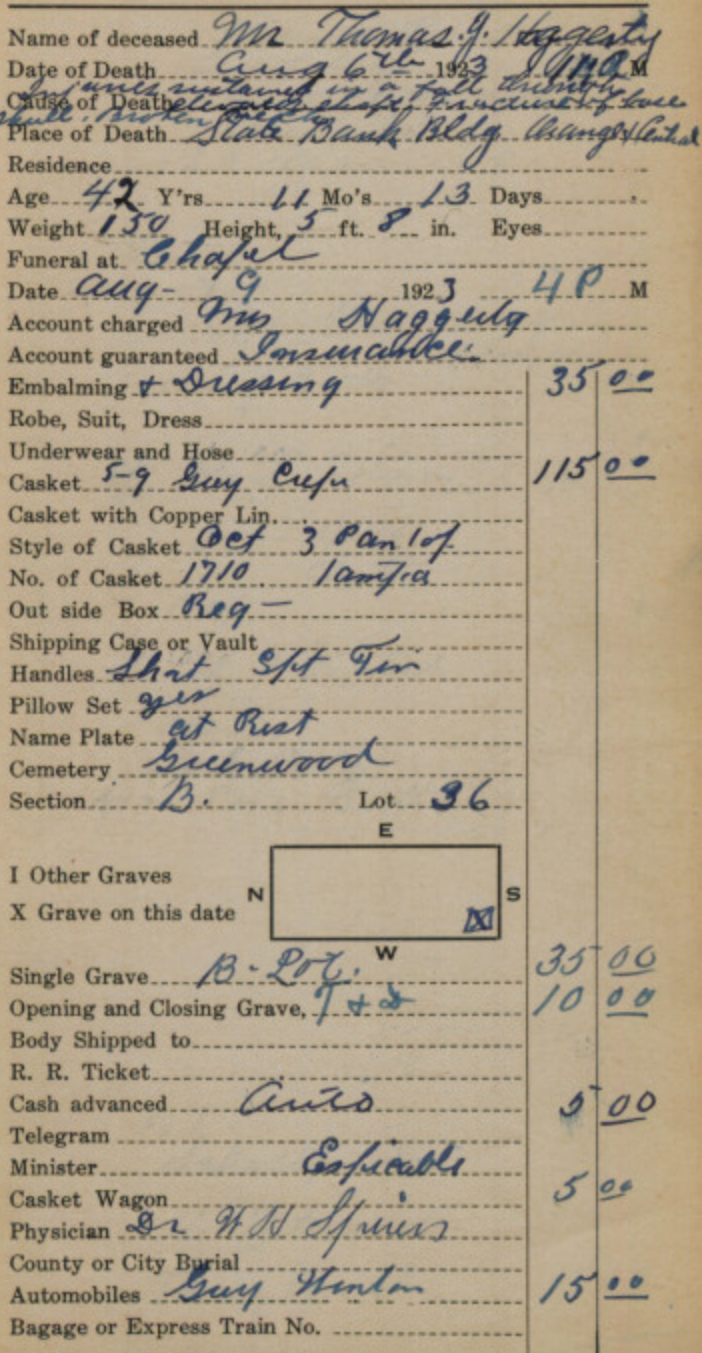 Name of deceased Mr Thomas J. Hagerty
Date of Death Aug 6th 1923 M
Injuries sustained in a fall through
Cause of Death elevator shaft. Fracture of base
skull. Broken
Place of Death State Bank Bldg Orange & Central
Residence
Age 42 Y'rs 11 Mo's 13 Days
Weight 150 Height, 5 ft. 8 in. Eyes
Funeral at Chapel
Date Aug- 9 1923 4 P M
Account charged Mrs Haggerty
Account guaranteed Insurance
Embalming & Dressing 35 00
Robe, Suit, Dress
Underwear and Hose
Casket 5-9 Grey Crepe 115 00
Casket with Copper Lin.
Style of Casket Oct 3 Pan Top
No. of Casket 1710 Tampa
Out side Box Reg-
Shipping Case or Vault
Handles Shrt
Pillow Set yes
Name Plate at Rest
Cemetery Greenwood
Section B. Lot 36
E
I Other Graves
N S
X Grave on this date X
W
Single Grave B-Lot. 35 00
Opening and Closing Grave, 10 00
Body Shipped to
R. R. Ticket
Cash advanced Auto 5 00
Telegram
Minister
Casket Wagon 5 00
Physician Dr W H Spiers
County or City Burial
Automobiles Guy Winton 15 00
Bagage or Express Train No.